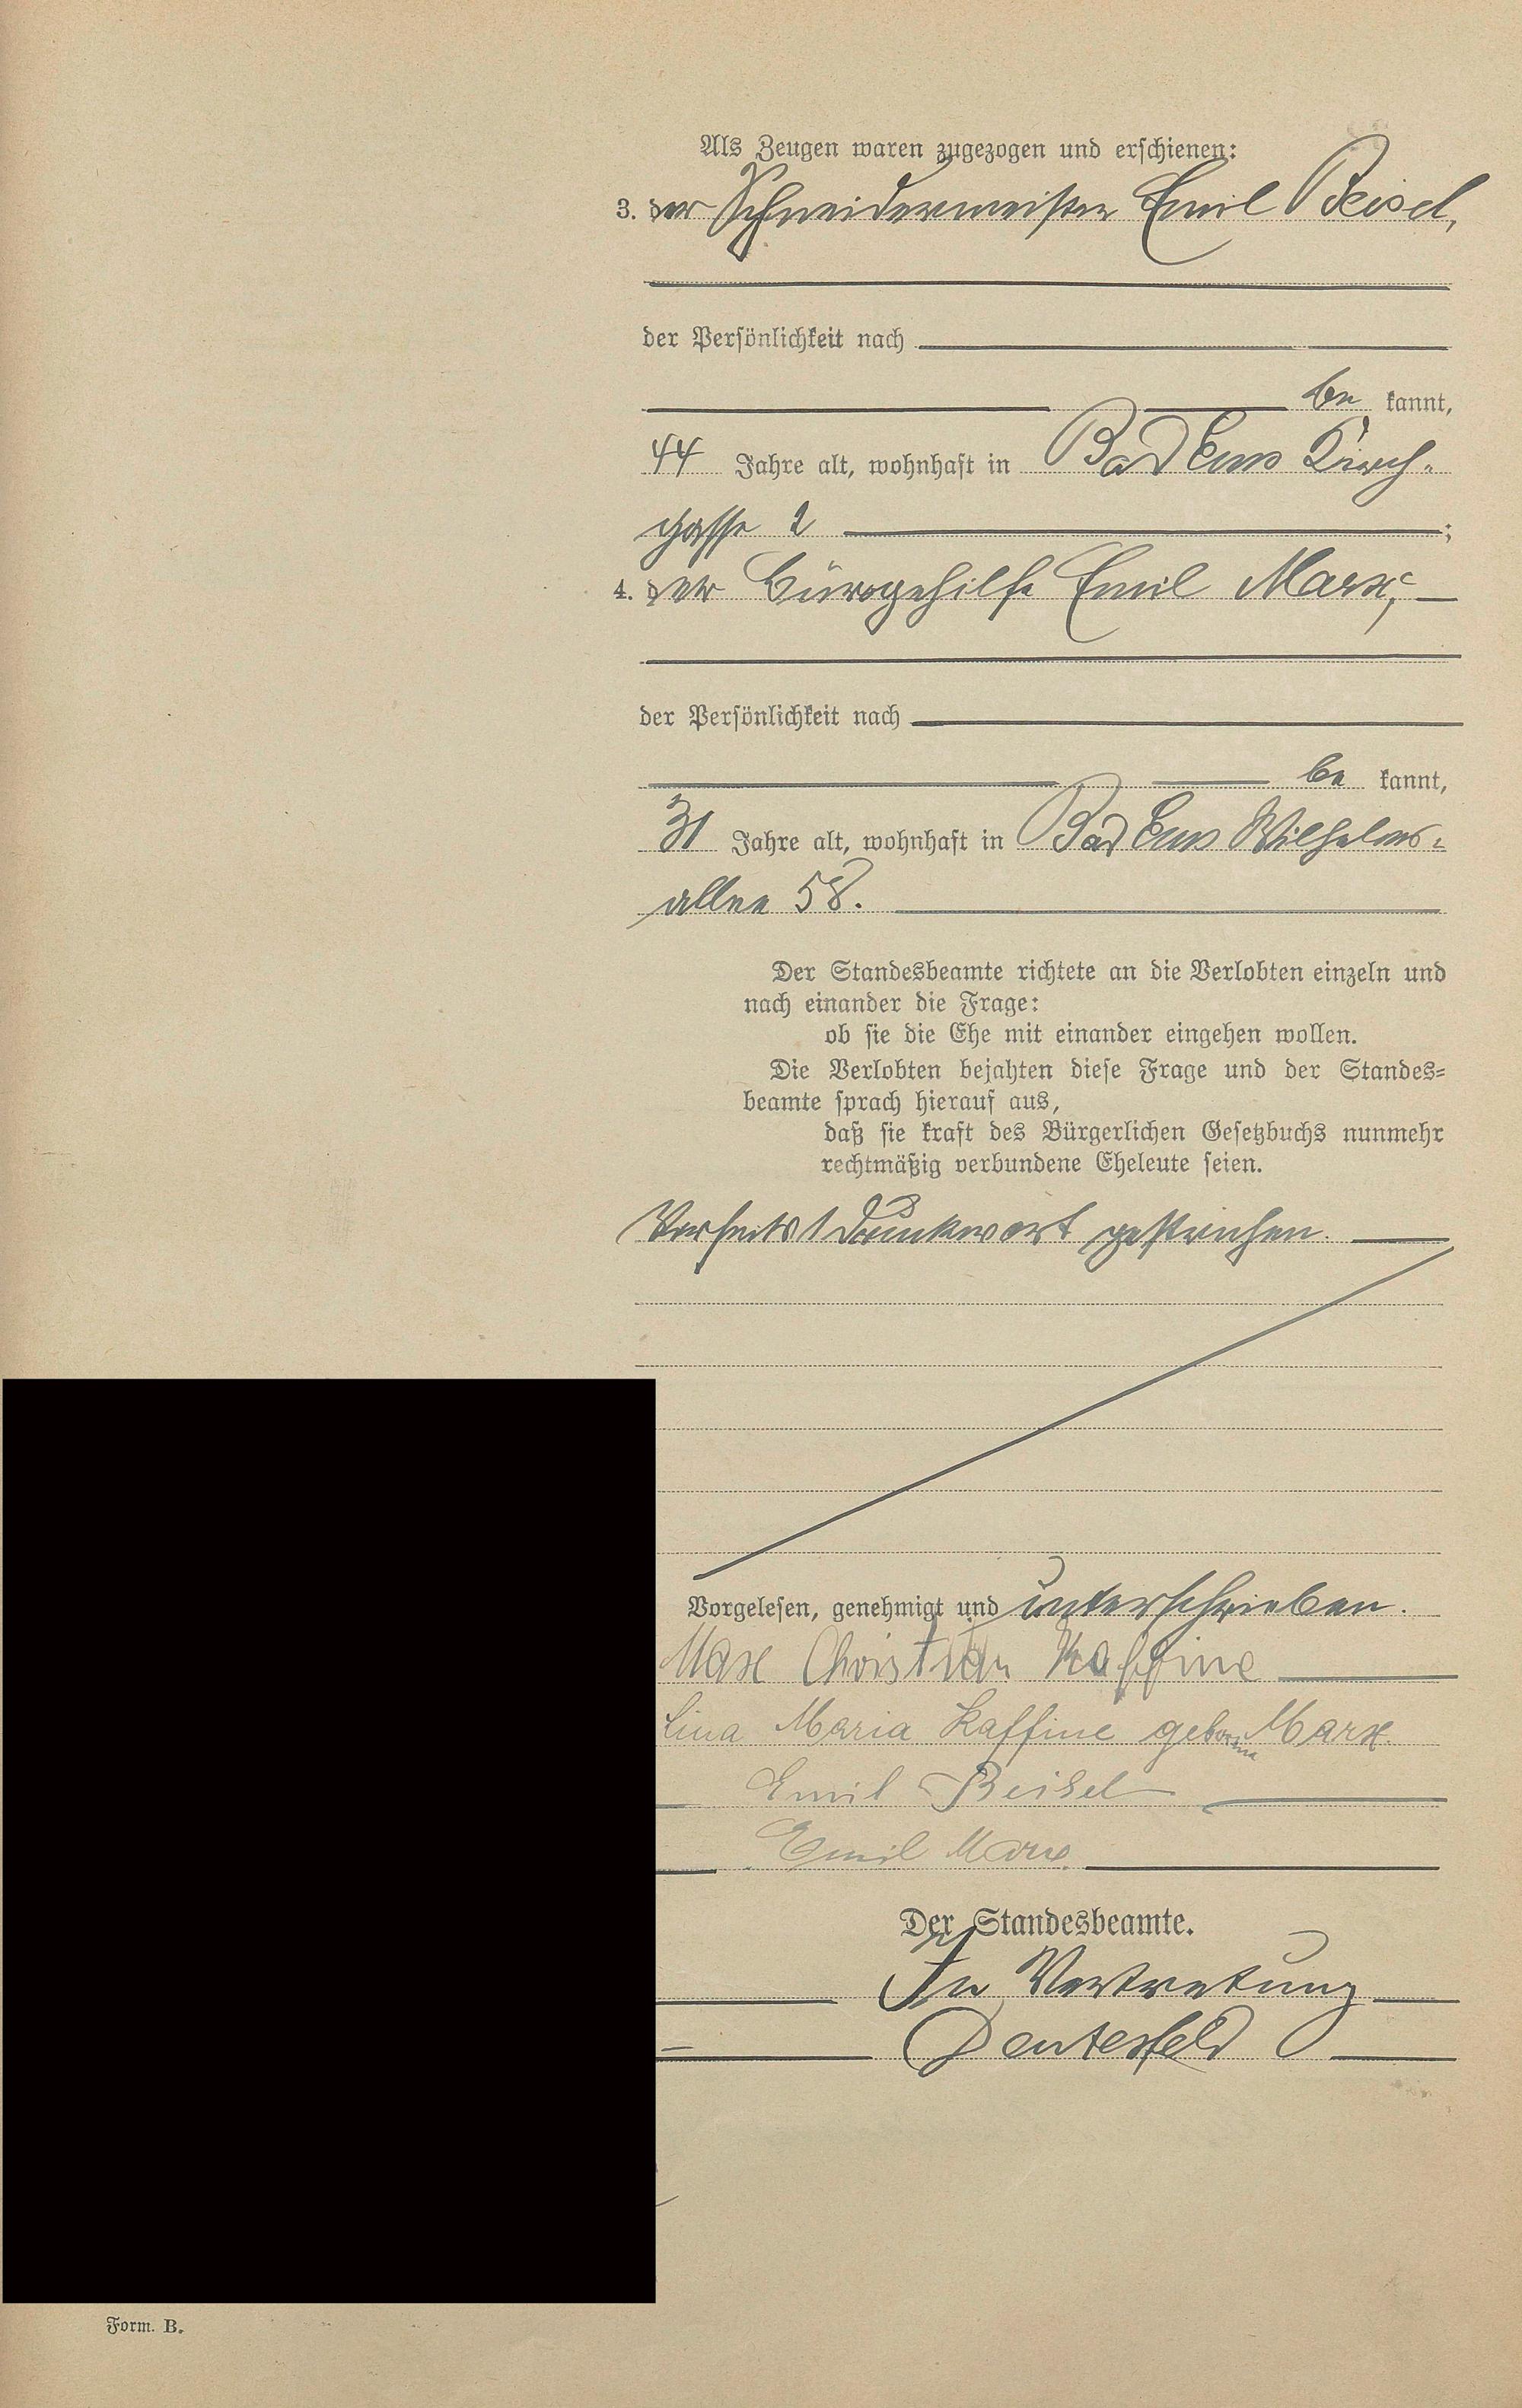 Als Zeugen waren zugezogen und erschienen:
3. der Schneidermeister Emil Beisel,
der Persönlichkeit nach
be kannt,
44 Jahre alt, wohnhaft in Bad Ems Kirch-
gasse 2 ;
4. der Bürogehilfe Emil Marx,
der Persönlichkeit nach
be kannt,
31 Jahre alt, wohnhaft in Bad Ems Wilhelms-
allee 58.
Der Standesbeamte richtete an die Verlobten einzeln und
nach einander die Frage:
ob sie die Ehe mit einander eingehen wollen.
Die Verlobten bejahten diese Frage und der Standes-
beamte sprach hierauf aus,
daß sie kraft des Bürgerlichen Gesetzbuchs nunmehr
rechtmäßig verbundene Eheleute seien.
Vorseits 1 Druckwort gestrichen.
Vorgelesen, genehmigt und unterschrieben.
Max Christian Kaffine
Lina Maria Kaffine geborene Marx.
Emil Beisel
Emil Marx.
Der Standesbeamte.
In Vertretung
Form. B.